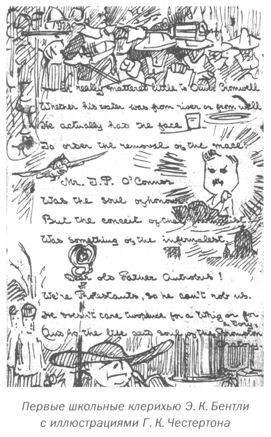 It really mattered little to Oliver Cromwell
Whether his water was from river or from well
He actually had the face
To order the removal of the mace.
Mr. T.P. O'Connor
Was the soul of honour
But the conceit of the
Was something of the infernalest.
Dear old Father Antrobus!
We're Protestants, so he can't rob us.
He doesn't care twopence for a Whig or for
a Tory,
And is the life and soul of the Brompton
Первые школьные клерихью Э. К. Бентли
с иллюстрациями Г. К. Честертона